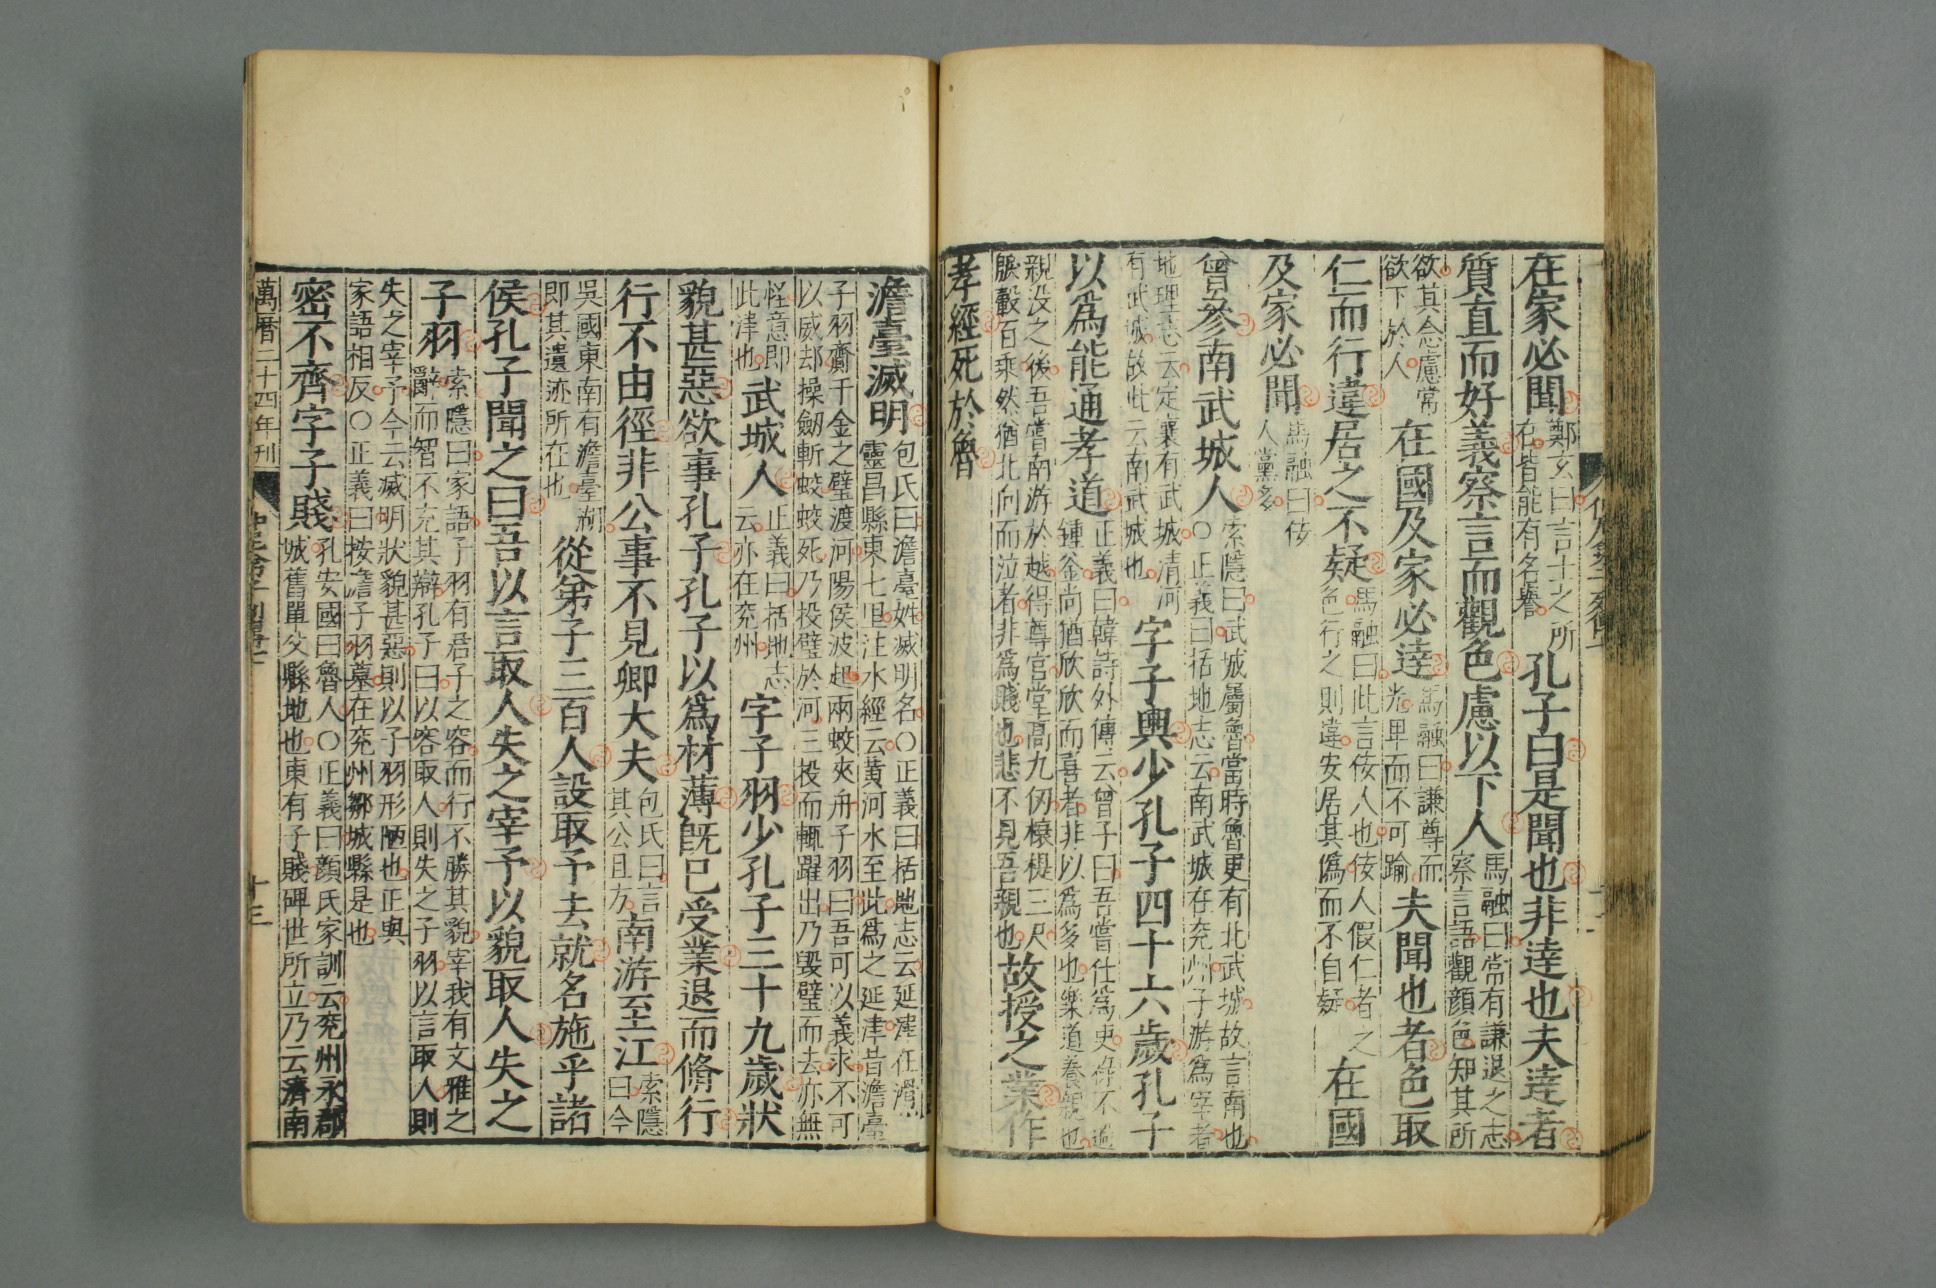 在家必聞鄭玄曰言士之所在皆能有名譽孔子曰是聞也非達也夫達者
質直而好義察言而觀色慮以下人馬融曰常有謙退之志察言語觀顏色知其所
欲其念慮常欲下於人在國及家必達馬融曰謙尊而光卑而不可踰夫聞也者色取
仁而行違居之不疑馬融曰此言佞人也佞人假仁者之色行之則違安居其僞而不自疑在國
及家必聞馬融曰佞人黨多
曾參南武城人索隱曰武城屬魯當時魯更有北武城故言南也○正義曰括地志云南武城在兗州子游爲宰者
地理志云定襄有武城清河有武城故此云南武城也字子輿少孔子四十六歲孔子
以爲能通孝道正義曰韓詩外傳云曾子曰吾嘗仕爲吏祿不過鍾釜尚猶欣欣而喜者非以爲多也樂道養親也
親没之後吾嘗南游於越得尊官堂高九仞榱提三尺䠣轂百乘然猶北向而泣者非爲賤也悲不見吾親也故授之業作
孝經死於魯
澹臺滅明包氏曰澹臺姓滅明名○正義曰括地志云延津在滑州靈昌縣東七里注水經云黄河水至此爲之延津昔澹臺
子羽齎千金之璧渡河陽侯波起兩蛟夾舟子羽曰吾可以義求不可以威却操劒斬蛟蛟死乃投璧於河三投而輒躍出乃毁璧而去亦無
怪意即此津也武城人正義曰括地志云亦在兗州字子羽少孔子三十九歲狀
貌甚惡欲事孔子孔子以爲材薄既已受業退而脩行
行不由徑非公事不見卿大夫包氏曰言其公且方南游至江索隱曰今
吳國東南有澹臺湖即其遺迹所在也從弟子三百人設取予去就名施乎諸
侯孔子聞之曰吾以言取人失之宰予以貌取人失之
子羽索隱曰家語子羽有君子之容而行不勝其貌宰我有文雅之辭而智不充其辯孔子曰以容取人則失之子羽以言取人則
失之宰予今云滅明狀貌甚惡則以子羽形陋也正與家語相反○正義曰按澹子羽墓在兗州鄒城縣是也
密不齊字子賤孔安國曰魯人○正義曰顏氏家訓云兗州永郡城舊單父縣地也東有子賤碑世所立乃云濟南
萬曆二十四年刊
十三